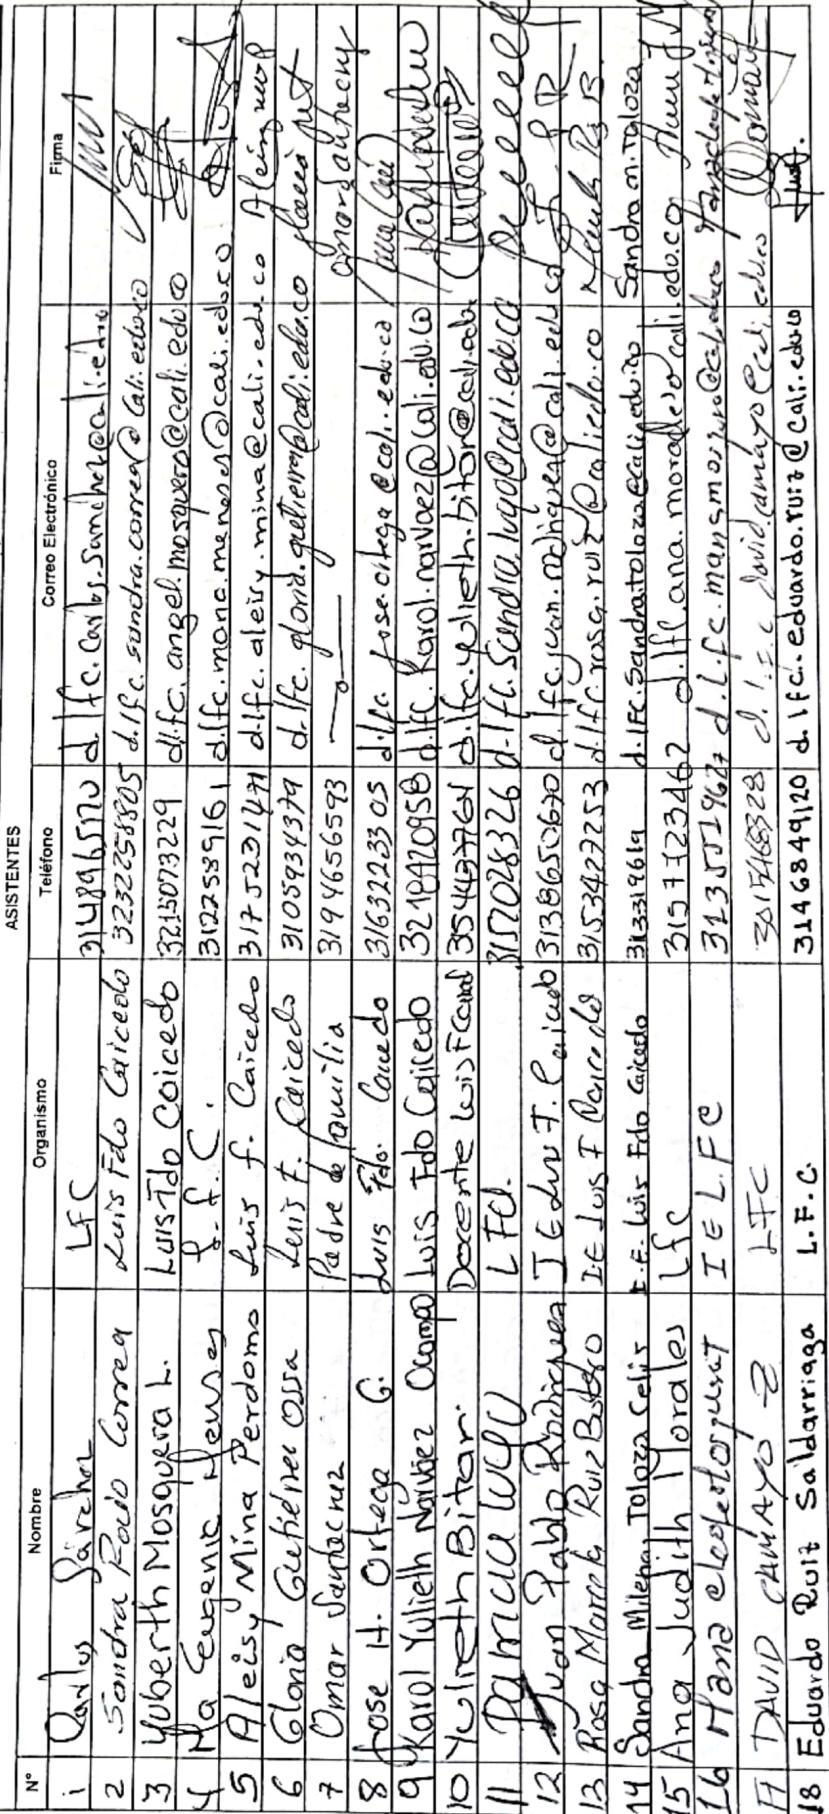 ASISTENTES
N° Nombre Organismo Teléfono Correo Electrónico Firma
1 Carlos Sánchez LFC 3148965170 d.lfc.Carlos.Sanchez@cali.edu
2 Sandra Rocio Correa Luis Fdo Caicedo 3232258805 d.lfc.sandra.correa@cali.edu.co
3 Yuberth Mosquera L. Luis Fdo Caicedo 3215073229 d.lfc.angel.mosquera@cali.edu.co
4 Ma Eugenia Meneses L.F.C. 3122589161 d.lfc.mona.meneses@cali.edu.co
5 Aleisy Mina Perdomo Luis f. Caicedo 3175231471 d.lfc.aleisy.mina@cali.edu.co Aleisy
6 Gloria Gutierrez Ossa Luis F. Caicedo 3105934379 d.lfc.gloria.gutierrez@cali.edu.co
7 Omar Santacruz Padre de familia 3194656593 Omar Santacruz
8 Jose H. Ortega G. Luis Fdo. Caicedo 3163223305 d.lfc.
9 Karol Yulieth Narváez Ocampo Luis Fdo Caicedo 3218420958 d.lfc.Karol.narvaez@cali.edu.co
10 Yulieth Bitar. Docente Luis F d.lfc.yulieth.bitar@cali.edu.
11 Lugo 3157028326 d.lfc.Sandra.lugo@cali.edu.co
12 Juan Pablo Rodriguez IE Luis F. Caicedo 3138650670 d.lfc.juan.rodriguez@cali.edu.co
13 Rosa Marcela Ruiz Botero IE Luis F Caicedo 3153427253 d.lfc.rosa.ruiz@cali.edu.co
14 Sandra Milena Toloza Celis I.E. Luis Fdo Caicedo 313331961 d.lfc.Sandra.toloza@cali.edu.co Sandra M. Toloza
15 Ana Judith Morales Lfc 3157723462 d.lfc.ana.morales@cali.edu.co
16 IE LFC
17 DAVID CAMAYO Z LFC d.l.f.c.david.camayo@cali.edu.co
18 Eduardo Ruiz Saldarriaga L.F.C. 3146849120 d.lfc.eduardo.ruiz@cali.edu.co